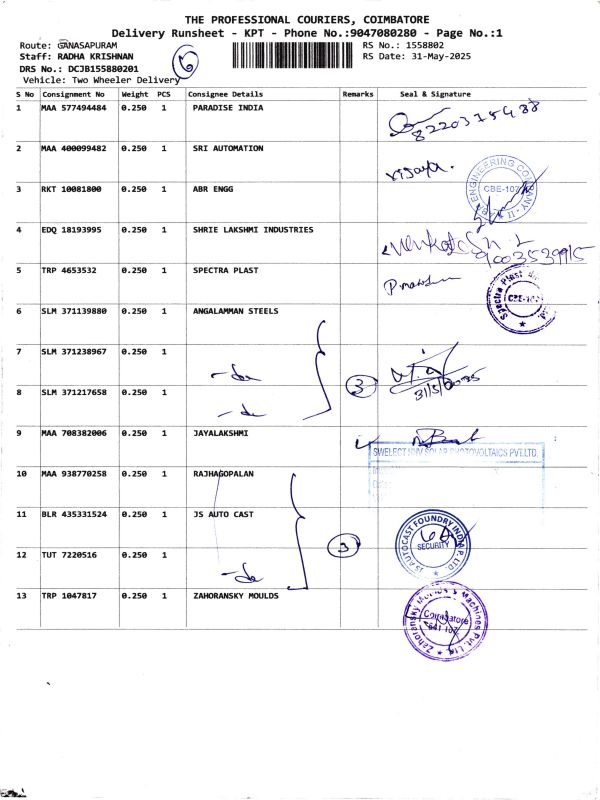 THE PROFESSIONAL COURIERS, COIMBATORE
Delivery Runsheet - KPT - Phone No.:9047080280 - Page No.:1
Route: GANASAPURAM
RS No.: 1558802
Staff: RADHA KRISHNAN
RS Date: 31-May-2025
DRS No.: DCJB155880201
6
Vehicle: Two Wheeler Delivery
S No Consignment No Weight PCS Consignee Details Remarks Seal & Signature
1 MAA 577494484 0.250 1 PARADISE INDIA
2 MAA 400099482 0.250 1 SRI AUTOMATION
vijaya.
3 RKT 10081800 0.250 1 ABR ENGG
ENGINEERING COMPANY - II
CBE-107
4 EDQ 18193995 0.250 1 SHRIE LAKSHMI INDUSTRIES
9003539915
5 TRP 4653532 0.250 1 SPECTRA PLAST
Spectra Plast
6 SLM 371139880 0.250 1 ANGALAMMAN STEELS
7 SLM 371238967 0.250 1
-do
8 SLM 371217658 0.250 1
-do
3
31/5/2025
9 MAA 708382006 0.250 1 JAYALAKSHMI
SWELECT SOLAR PHOTOVOLTAICS PVT.LTD.
10 MAA 938770258 0.250 1 RAJHAGOPALAN
11 BLR 435331524 0.250 1 JS AUTO CAST
JS AUTOCAST FOUNDRY INDIA P. LTD
SECURITY
12 TUT 7220516 0.250 1
-do
3
13 TRP 1047817 0.250 1 ZAHORANSKY MOULDS
Zahoransky Moulds & Machines Pvt. Ltd.
Coimbatore
641 107